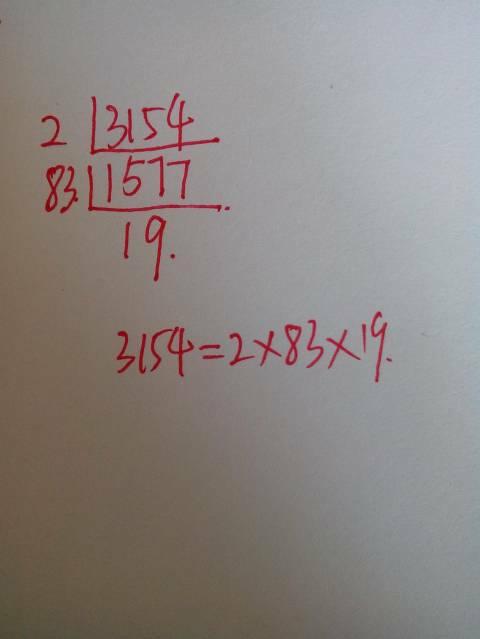 2 3154
83. 1577
19.
3154=2×83×19.